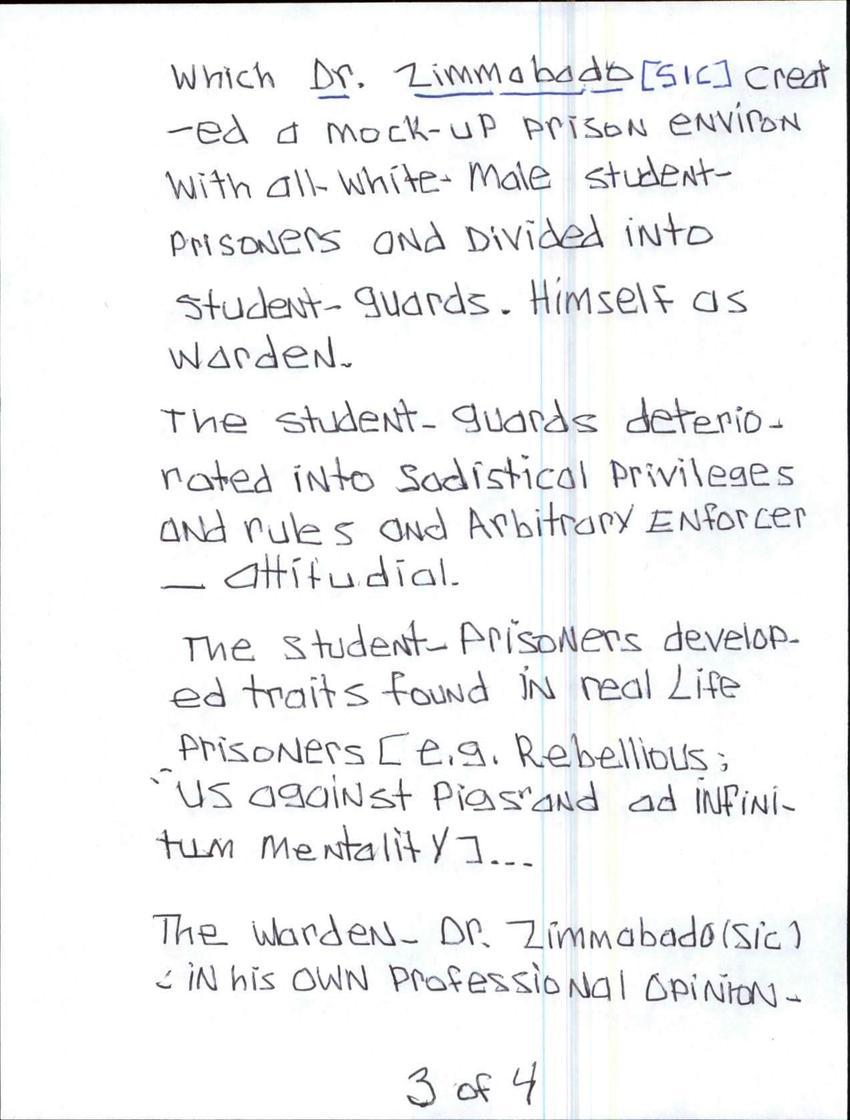 Which Dr. Zimmabado [SIC] creat
-ed a mock-up prison environ
with all-white-male student-
prisoners and divided into
student-guards. Himself as
warden.
The student-guards deterio-
rated into sadistical privileges
and rules and Arbitrary Enforcer
— attitudial.
The student-prisoners develop-
ed traits found in real Life
prisoners [e.g. Rebellious;
"us against Pigs" and ad infini-
tum mentality]...
The warden- Dr. Zimmabado (sic)
in his own professional opinion-
3 of 4